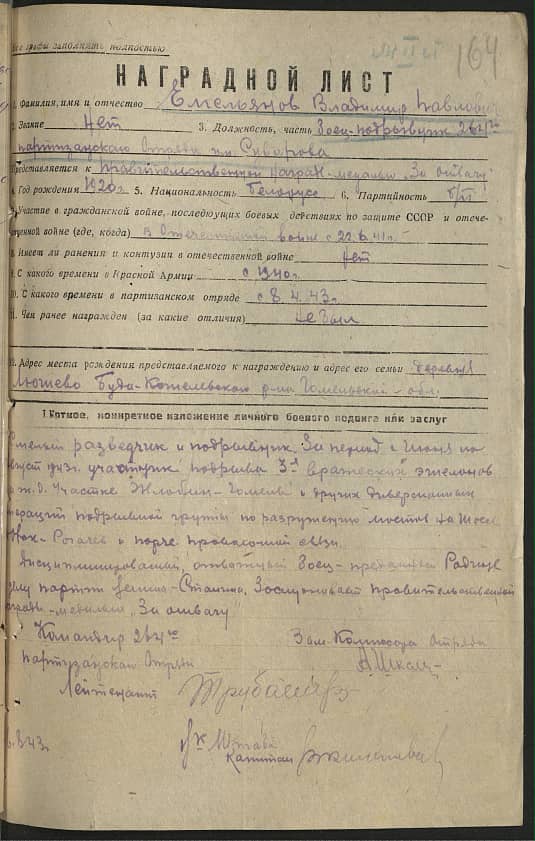 Все графы заполнять полностью
164
НАГРАДНОЙ ЛИСТ
1. Фамилия, имя и отчество Емельянов Владимир Павлович
2. Звание нет 3. Должность, часть Боец-подрывник 264го
партизанского отряда им. Суворова
Представляется к правительственной награде-медалью "За отвагу"
4. Год рождения 1920г. 5. Национальность белорус 6. Партийность б/п
7. Участие в гражданской войне, последующих боевых действиях по защите СССР и отече-
ственной войне (где, когда) в Отечественной войне с 22.6.41г.
8. Имеет ли ранения и контузии в отечественной войне нет
9. С какого времени в Красной Армии с 1940г.
10. С какого времени в партизанском отряде с 8.4.43г.
11. Чем ранее награжден (за какие отличия) не был
12. Адрес места рождения представляемого к награждению и адрес его семьи деревня
Буда-Кошелевского р-на Гомельской обл.
I Кротное, конкретное изложение личного боевого подвига или заслуг
разведчик и подрывник. За период с июня по
август 1943г. участник подрыва 3-х вражеских эшелонов
ж.д. участке Жлобин-Гомель и других диверсионных
операций подрывной группы по разрушению мостов на шоссе
Рогачев и порче проволочной связи.
Дисциплинированный, отважный боец- преданный Родине
делу партии Ленина-Сталина, Заслуживает правительственной
награды-медалью "За отвагу"
Командир 264го
партизанского отряда
Лейтенант
Зам. Комиссара отряда
Капитан
8.43г.